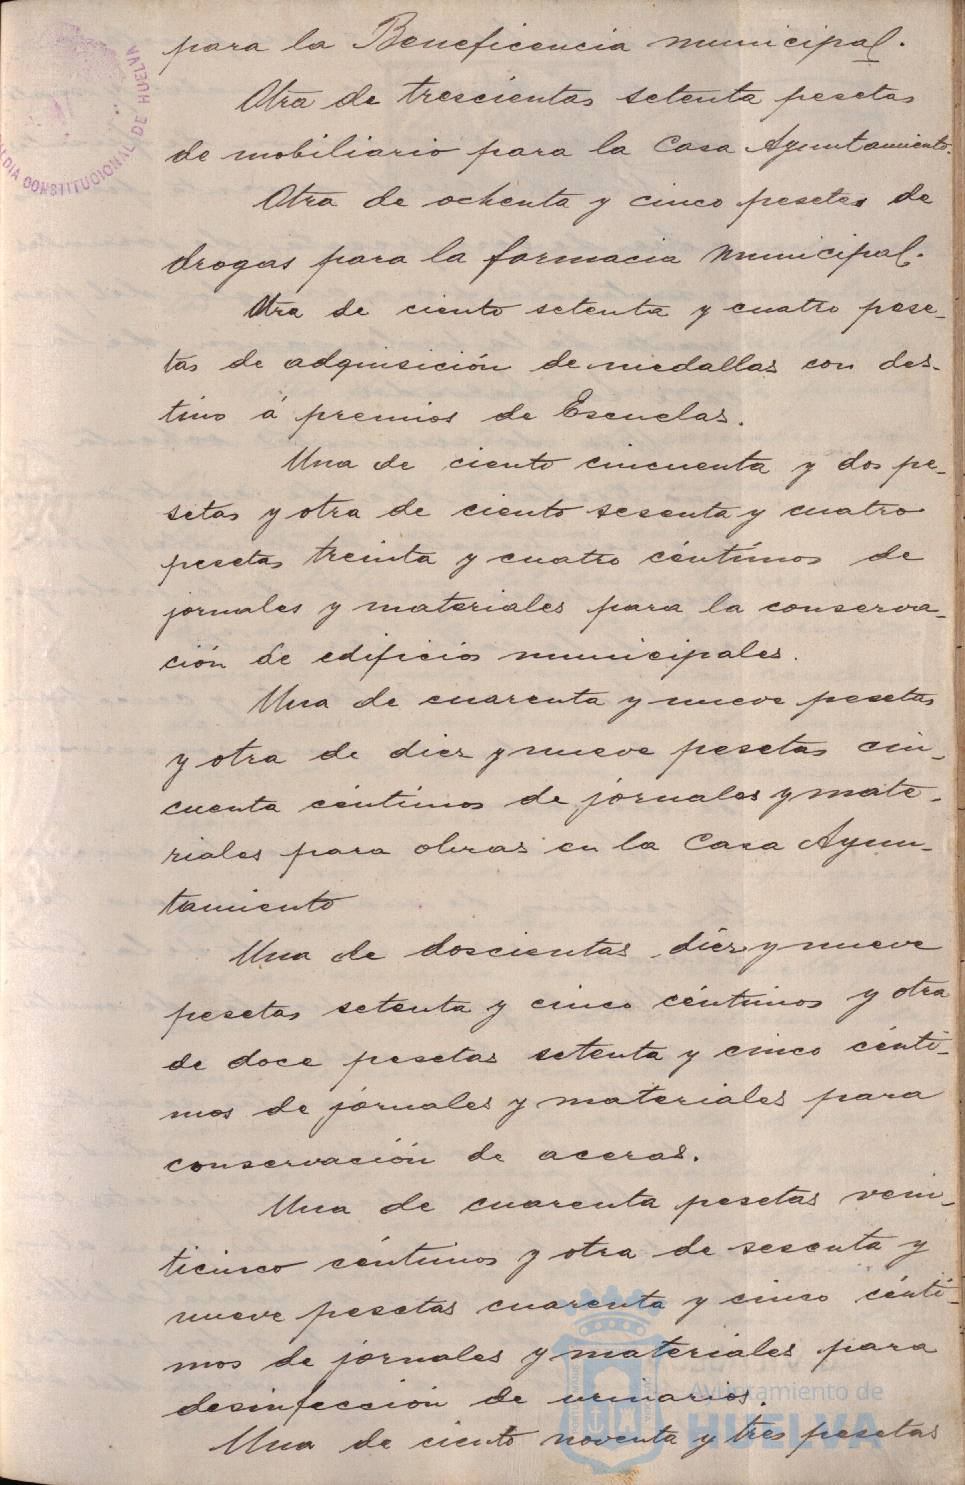 para la Beneficencia municipal.
Otra de trescientas setenta pesetas
de mobiliario para la Casa Ayuntamiento.
Otra de ochenta y cinco pesetas de
drogas para la farmacia municipal.
Otra de ciento setenta y cuatro pese-
tas de adquisición de medallas con des-
tino á premios de Escuelas.
Una de ciento cincuenta y dos pe-
setas y otra de ciento sesenta y cuatro
pesetas treinta y cuatro céntimos de
jornales y materiales para la conserva-
ción de edificios municipales.
Una de cuarenta y nueve pesetas
y otra de diez y nueve pesetas cin-
cuenta céntimos de jornales y mate-
riales para obras en la Casa Ayun-
tamiento
Una de doscientas diez y nueve
pesetas setenta y cinco céntimos y otra
de doce pesetas setenta y cinco cénti-
mos de jornales y materiales para
conservación de aceras.
Una de cuarenta pesetas vein-
ticinco céntimos y otra de sesenta y
nueve pesetas cuarenta y cinco cénti-
mos de jornales y materiales para
desinfección de urinarios.
Una de ciento noventa y tres pesetas
CONSTITUCIONAL DE HUELVA
Ayuntamiento de
HUELVA